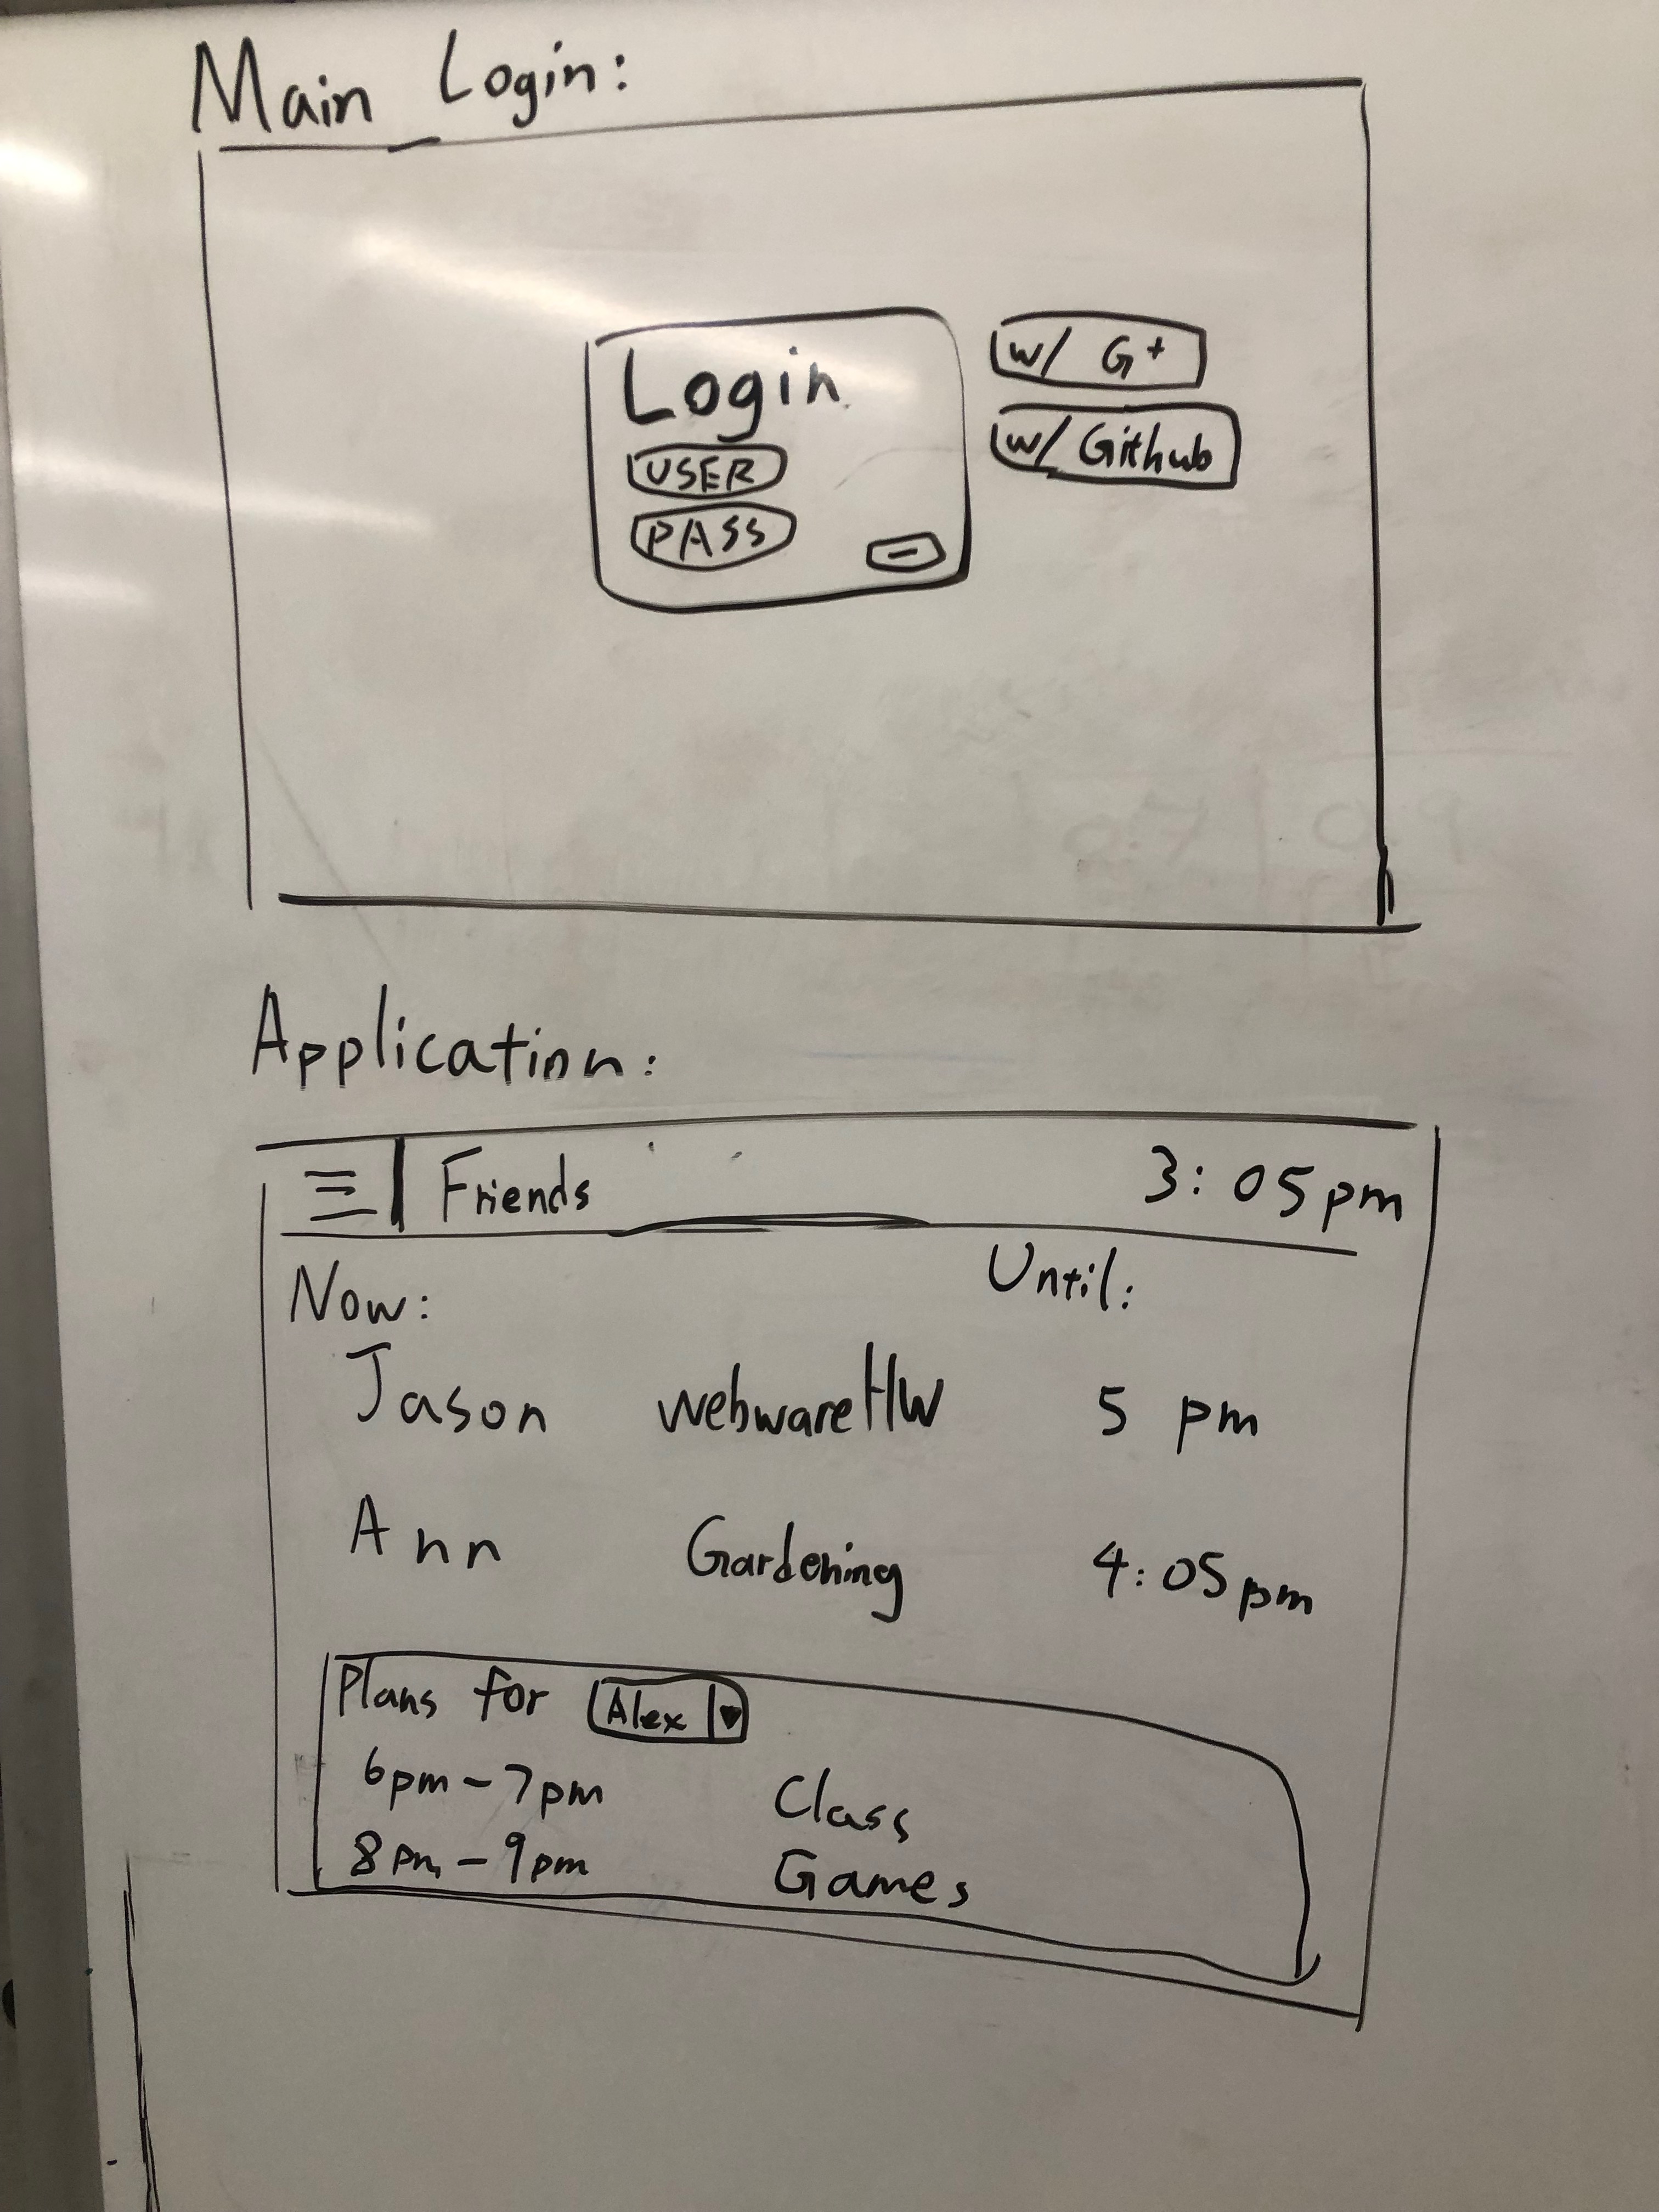 Main Login:
Login
w/ G+
USER
w/ Github
PASS
Application:
Friends 3:05pm
Now: Until:
Jason webwareHW 5 pm
Ann Gardening 4:05pm
Plans for Alex
6pm - 7pm Class
8pm - 9pm Games